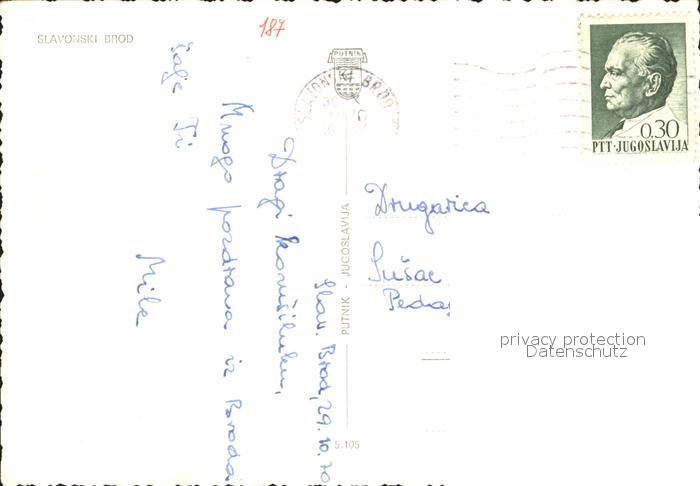 SLAVONSKI BROD
187
PUTNIK
SLAVONSKI BROD
0.30
PTT·JUGOSLAVIJA
PUTNIK - JUGOSLAVIJA
5.105
Slav. Brod, 29.10.70
Dragi
Mnogo pozdrava iz Broda
šalje Ti
Mile
Drugarica
Sušac
privacy protection
Datenschutz